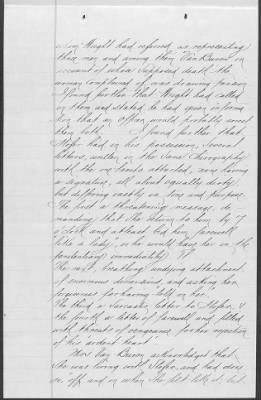 whom Wright had referred, as representing
these men and among them Van Buren on
account of whose supposed death the
woman complained of was drawing pension
I found further that Wright had called
on them and stated he had given informa
tion that an officer would probably arrest
them both. I found further that,
had in his possession, several
letters, written in the same chirography
with the attached, none having
a signature, all about equally dirty
but differing
The first a threatening message de
manding that she return to him by 7
o'clock and at least bid him farewell
"like a lady", who would have her in the
penitentiary immediately
The next, breathing undying attachment
of enormous dimensions, and asking her
forgiveness for having told on her.
The third a letter to &
the fourth a letter of farewell and filled
with threats of vengeance for the rejection
of his ardent heart.
Mrs Van Buren acknowledged that
she was living with and had done
so, off and on when she felt like it, but